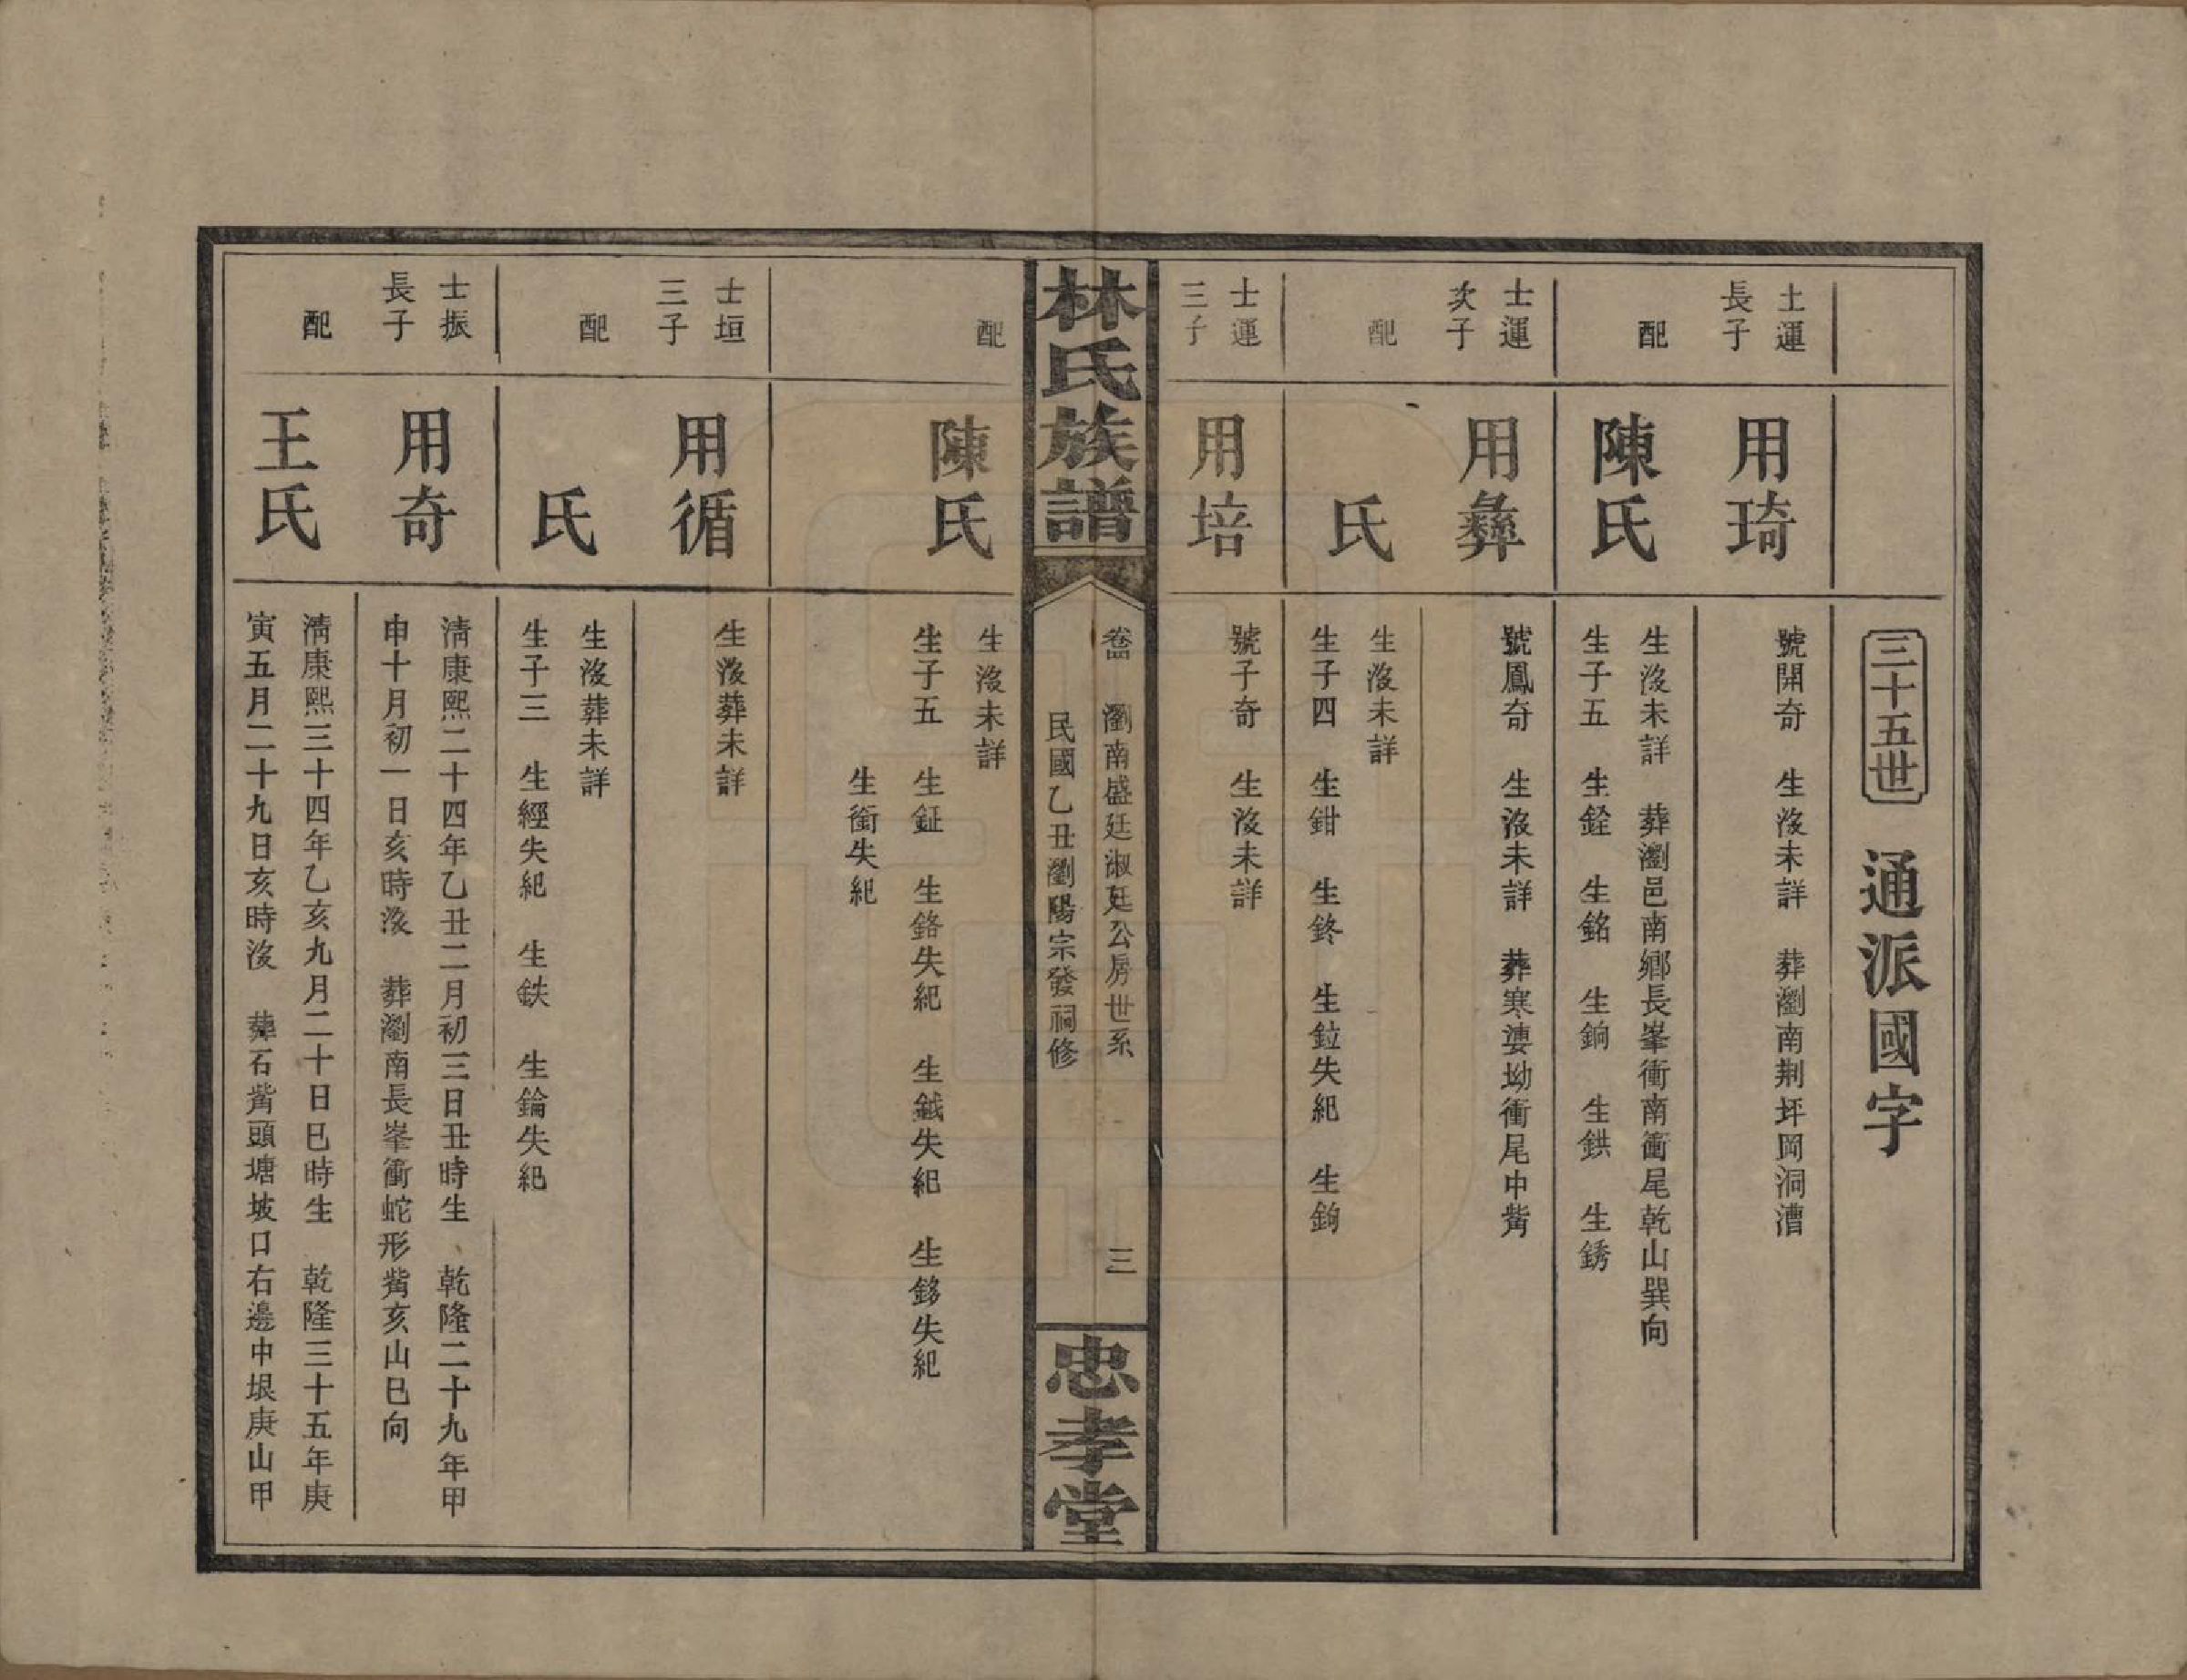 三十五世 通派國字
士運
長子
用琦
號開奇 生沒未詳 葬瀏南荆坪岡洞漕
配
陳氏
生沒未詳 葬瀏邑南鄉長峯衝南衝尾乾山巽向
生子五 生銓 生銘 生銄 生鉷 生銹
士運
次子
用彝
號鳳奇 生沒未詳 葬寒婆坳衝尾中觜
配
氏
生沒未詳
生子四 生鉗 生鉖 生鉝失紀 生鉤
士運
三子
用培
號子奇 生沒未詳
林氏族譜
卷四 瀏南盛廷淑廷公房世系 三
民國乙丑瀏陽宗發祠修
忠孝堂
配
陳氏
生沒未詳
生子五 生鉦 生鉻失紀 生鉞失紀 生鉹失紀
生銜失紀
士垣
三子
用循
生沒葬未詳
配
氏
生沒葬未詳
生子三 生經失紀 生鉄 生錀失紀
士振
長子
用奇
清康熙二十四年乙丑二月初三日丑時生 乾隆二十九年甲
申十月初一日亥時沒 葬瀏南長峯衝蛇形觜亥山巳向
配
王氏
清康熙三十四年乙亥九月二十日巳時生 乾隆三十五年庚
寅五月二十九日亥時沒 葬石觜頭塘坡口右邊中垠庚山甲